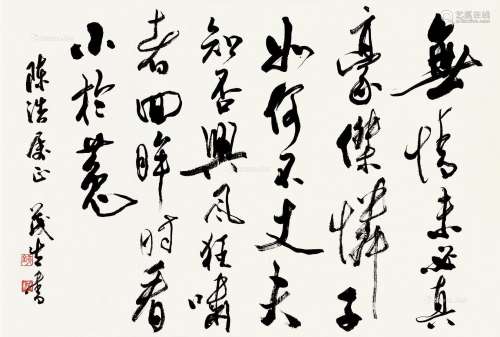 無情未必真
豪傑憐子
如何不丈夫
知否興风狂嘯
者回眸时看
小於菟
陳浩属正 茂生書